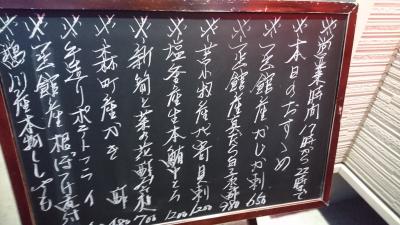 ※営業時間17時から22時まで
※本日のおすすめ
※函館産かじか刺 650
※函館産真だち白子天ぷら
※苫小牧産北寄貝刺 1200
※塩釜産生本鮪中とろ 1200
※新筍と菜の花 700
※森町産かき 酢
手造りポテトフライ
※函館産根ぼっけ煮付
※鵡川産本ししゃも